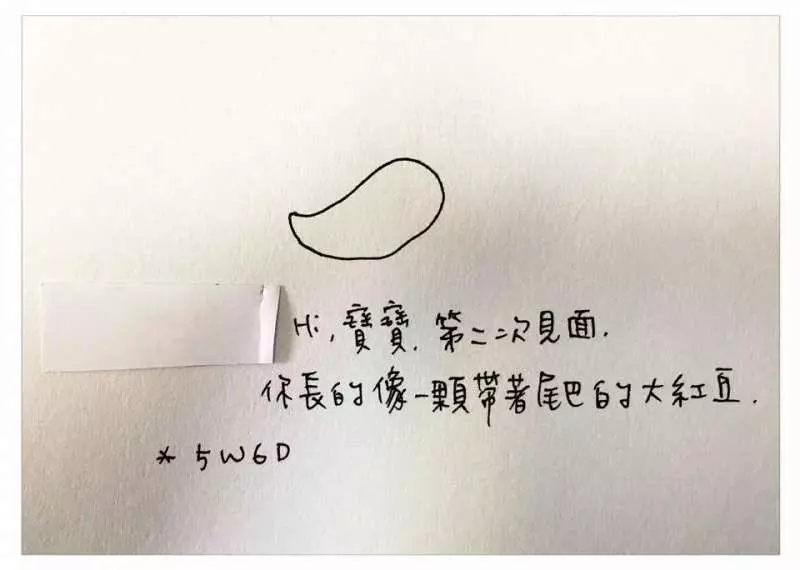 Hi, 寶寶. 第二次見面.
你長的像一顆帶著尾巴的大紅豆.
* 5W6D